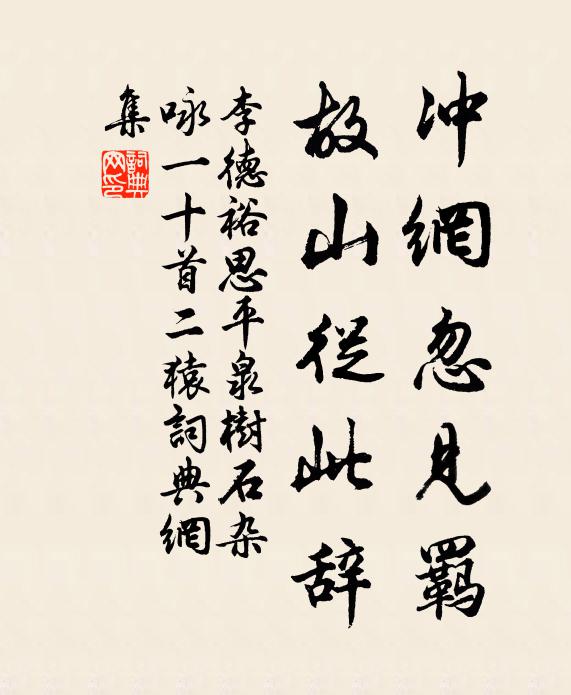 冲網忽見羈
故山從此辞
李德裕思平泉樹石杂
咏一十首二猿詞典網
集
詞典
网印